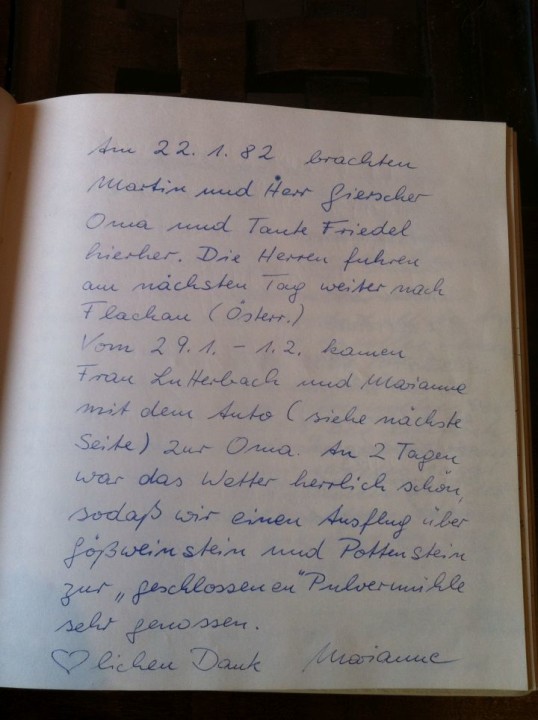 Am 22. 1. 82 brachten
Martin und Herr Gierscher
Oma und Tante Friedel
hierher. Die Herren fuhren
am nächsten Tag weiter nach
Flachau (Österr.)
Vom 29.1. – 1.2. kamen
Frau Lutterbach und Marianne
mit dem Auto (siehe nächste
Seite) zur Oma. An 2 Tagen
war das Wetter herrlich schön,
sodaß wir einen Ausflug über
Gößweinstein und Pottenstein
zur „geschlossenen" Pulvermühle
sehr genossen.
♡lichen Dank Marianne